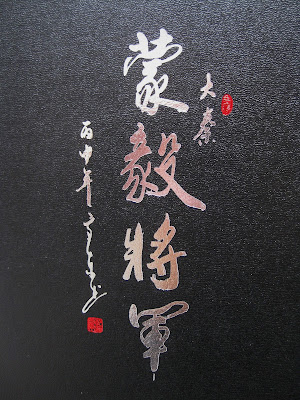 大秦
蒙毅將軍
丙申年